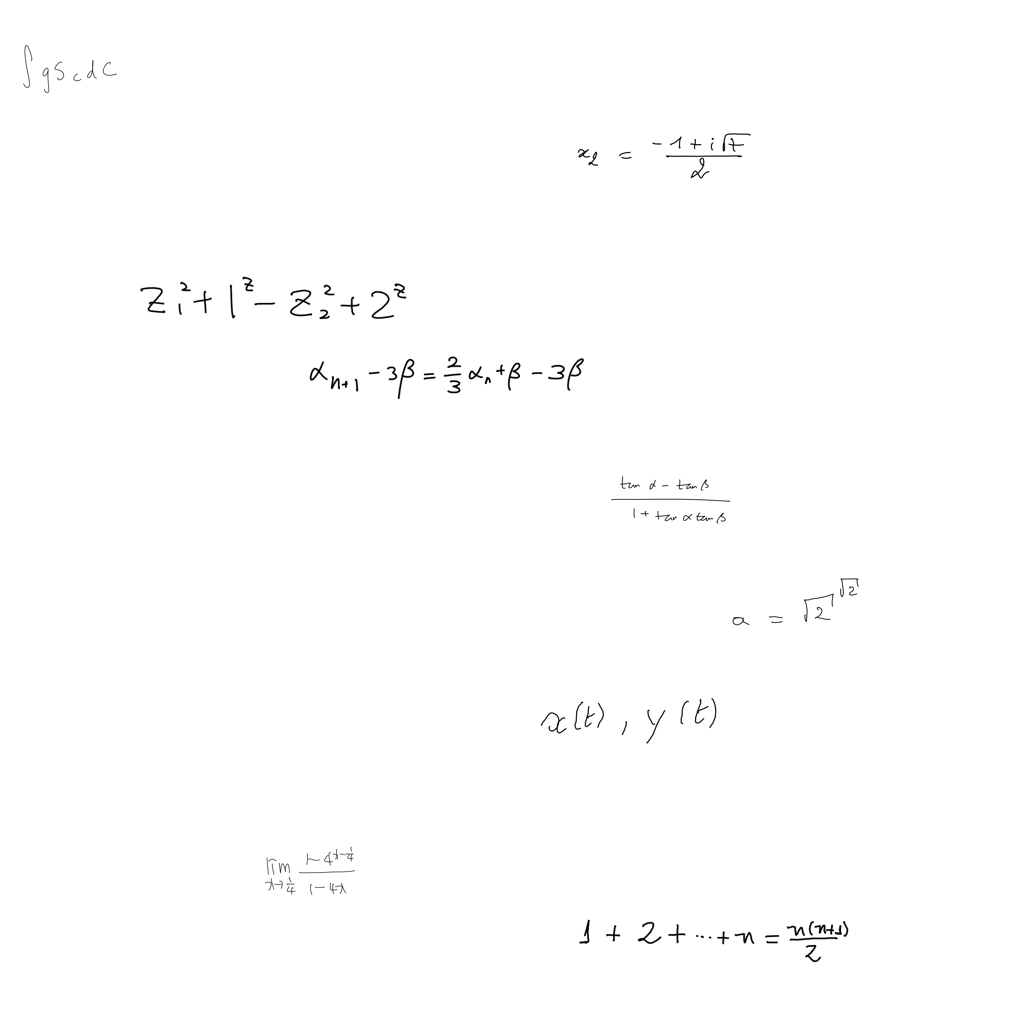 ∫ g S_c d c
x_2 = \frac{-1 + i\sqrt{7}}{2}
z_1^2 + 1^z - z_2^2 + 2^z
α_{n+1} - 3β = \frac{2}{3} α_n + β - 3β
\frac{\tan α - \tan β}{1 + \tan α \tan β}
a = \sqrt{2}^{\sqrt{2}}
x(t), y(t)
\lim_{x→\frac{1}{4}} \frac{1 - 4^{x - \frac{1}{4}}}{1 - 4x}
1 + 2 + ... + n = \frac{n(n+1)}{2}